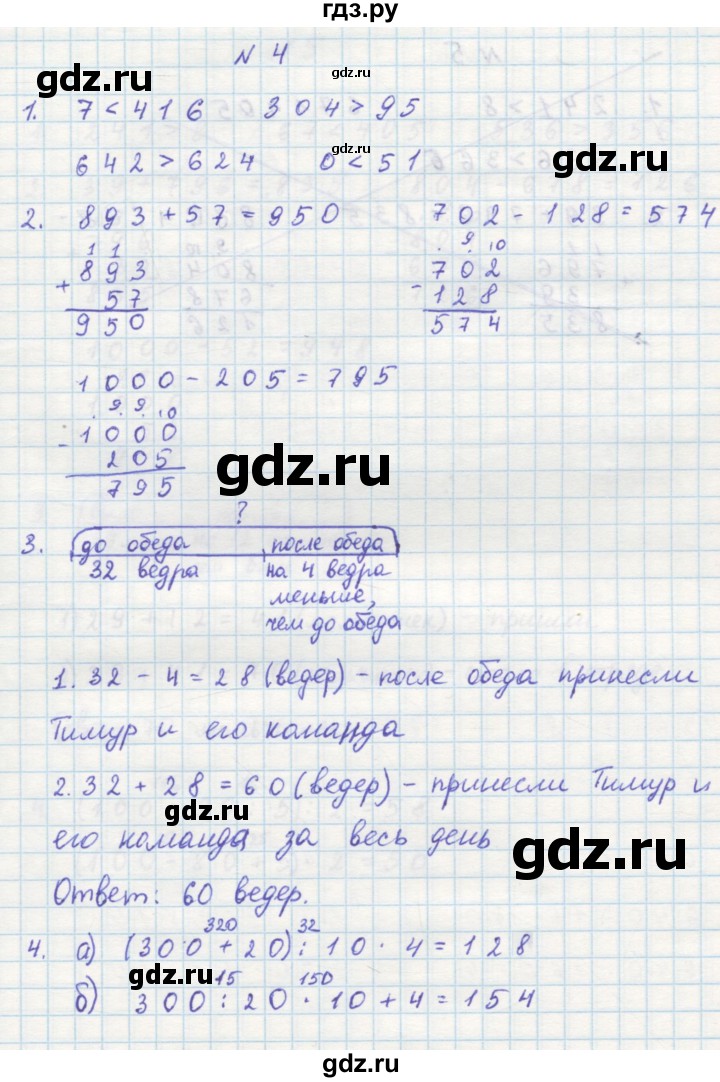 гдз.ру
№ 4
gdz.ru
gdz.ru
1. 7 < 416 304 > 95
gdz.ru
gdz.ru
642 > 624 0 < 51
2. 893 + 57 = 950 702 - 128 = 574
gdz.ru
1 1 . 9. 10
+ 893 - 702
57 128
950 574
1000 - 205 = 795
. 9. 9. 10
- 1000
205
795
gdz.ru
gdz.ru
?
3. до обеда после обеда
32 ведра на 4 ведра
меньше,
чем до обеда
1. 32 - 4 = 28 (ведер) - после обеда принесли
Тимур и его команда
2. 32 + 28 = 60 (ведер) - принесли Тимур и
gdz.ru
его команда за весь день
gdz.ru
Ответ: 60 ведер.
320 32
4. а) (300 + 20) : 10 · 4 = 128
gdz.ru
15 150
б) 300 : 20 · 10 + 4 = 154
gdz.ru